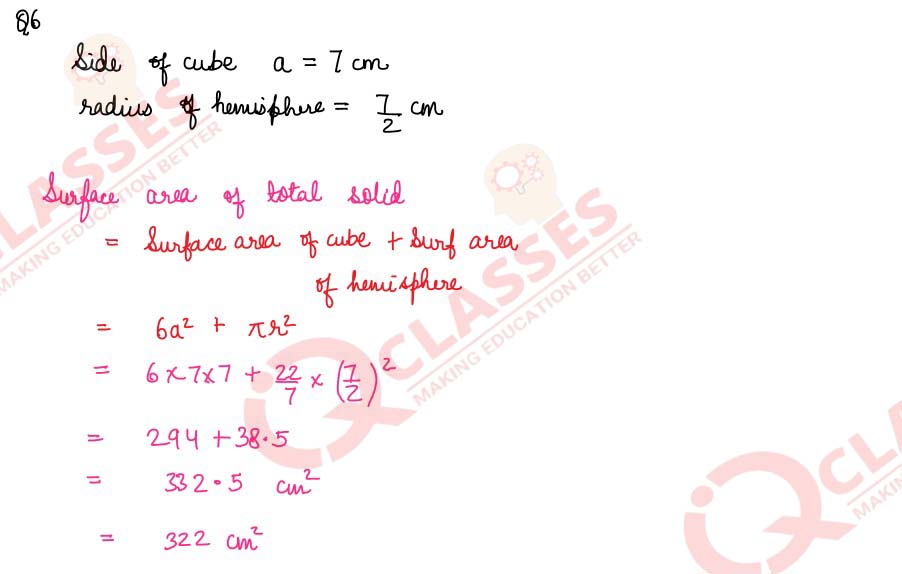 Q6
Side of cube a = 7 cm
radius of hemisphere = 7/2 cm
Surface area of total solid
= Surface area of cube + Surf area
of hemisphere
= 6a² + πr²
= 6×7×7 + 22/7 × (7/2)²
= 294 + 38.5
= 332.5 cm²
= 322 cm²
CLASSES
MAKING EDUCATION BETTER
IQCLASSES
MAKING EDUCATION BETTER
IQCLAS
MAKING